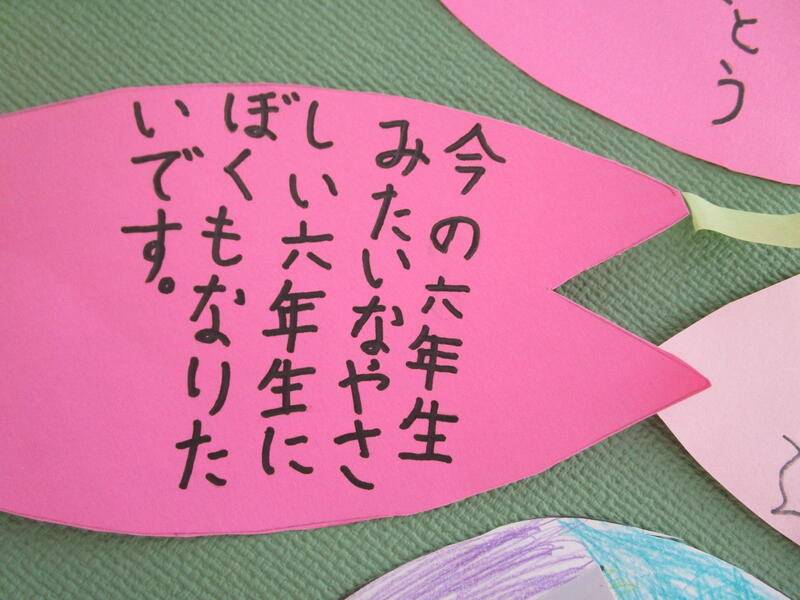 今の六年生
みたいなやさ
しい六年生に
ぼくもなりた
いです。
とう